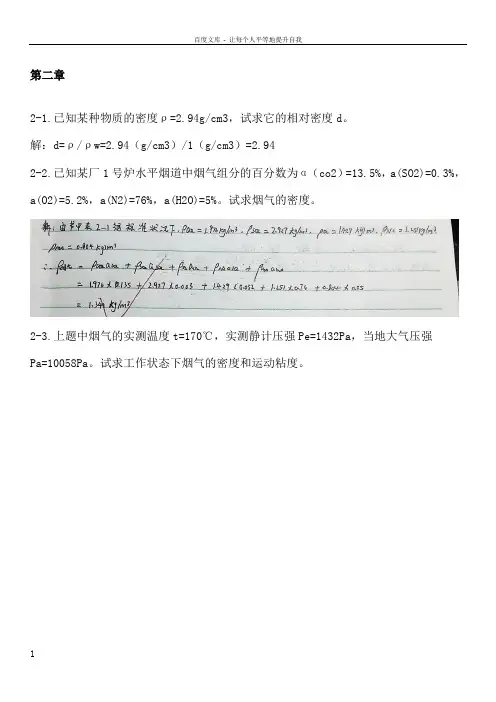 百度文库 - 让每个人平等地提升自我
第二章
2-1.已知某种物质的密度ρ=2.94g/cm3，试求它的相对密度d。
解：d=ρ/ρw=2.94（g/cm3）/1（g/cm3）=2.94
2-2.已知某厂1号炉水平烟道中烟气组分的百分数为α（co2）=13.5%，a(SO2)=0.3%，
a(O2)=5.2%，a(N2)=76%，a(H2O)=5%。试求烟气的密度。
解：由 表2-1 标准状况下，=1.976kg/m³，=2.927kg/m³，=1.429kg/m³，
=0.804kg/m³
=1.976×0.135+2.927×0.003+1.429×0.052+1.251×0.76+0.804×0.05
=1.34 kg/m³
2-3.上题中烟气的实测温度t=170℃，实测静计压强Pe=1432Pa，当地大气压强
Pa=10058Pa。试求工作状态下烟气的密度和运动粘度。
1